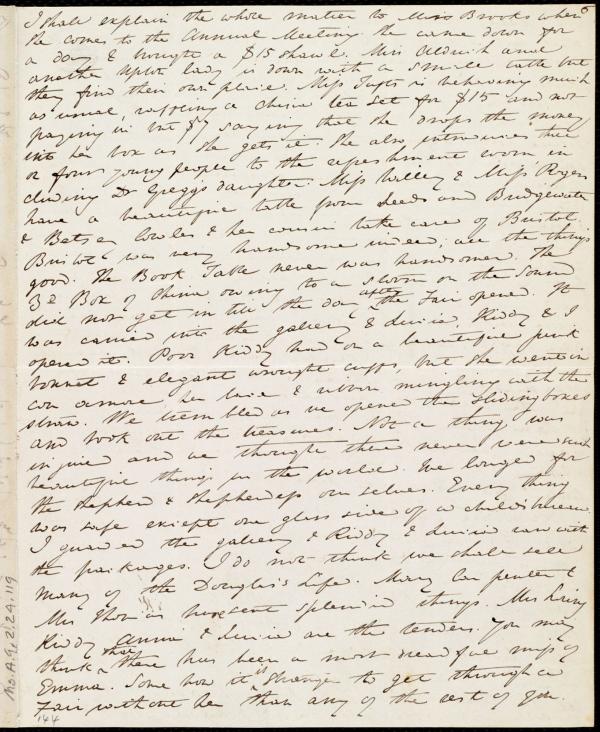 6
I shall explain the whole matter to Miss Brooks when
she comes to the Annual Meeting. She came down for
a day & bought a $15 shawl. Mrs Aldrich and
another Upton lady is down with a small table but
they find their own place. Miss Tufts is behaving much
as usual, raffling a china tea set for $15 and not
paying in but $7 saying that she drops the money
into her box as she gets it. She also introduces three
or four young people to the refreshment room in
cluding Dr Gregg's daughter. Miss Willey & Miss Rogers
have a beautiful table from Leeds and Bridgewater
& Betsey Cowles & her cousin take care of Bristol.
Bristol was very handsome indeed, all the things
good. The Book Table never was handsomer. The
3d Box of China owing to a storm on the Sound
did not get in till the day after the Fair opened. It
was carried into the gallery & Louisa, Kiddy & I
opened it. Poor Kiddy had on a beautiful pink
bonnet & elegant wrought cuffs, but she went in
con amore her lace & ribbon mingling with the
straw. We trembled as we opened the sliding boxes
and took out the treasures. Not a thing was
injured and we thought there never were such
beautiful things in the world. We longed for
the shepherd & shepherdess ourselves. Every thing
was safe except one glass side of a childs bureau.
I guarded the gallery & Kiddy & Louisa ran with
the packages. I do not think we shall sell
many of the Douglass Life. Mary Carpenter &
Mrs Thomas have sent splendid things. Mrs Loring
Kiddy Anna & Louisa are the tenders. You may
think that there has been a most dreadful miss of
Emma. Some how it is stranger to get through a
Fair without her than any of the rest of you.
Ms.A.9.2.24.119
144